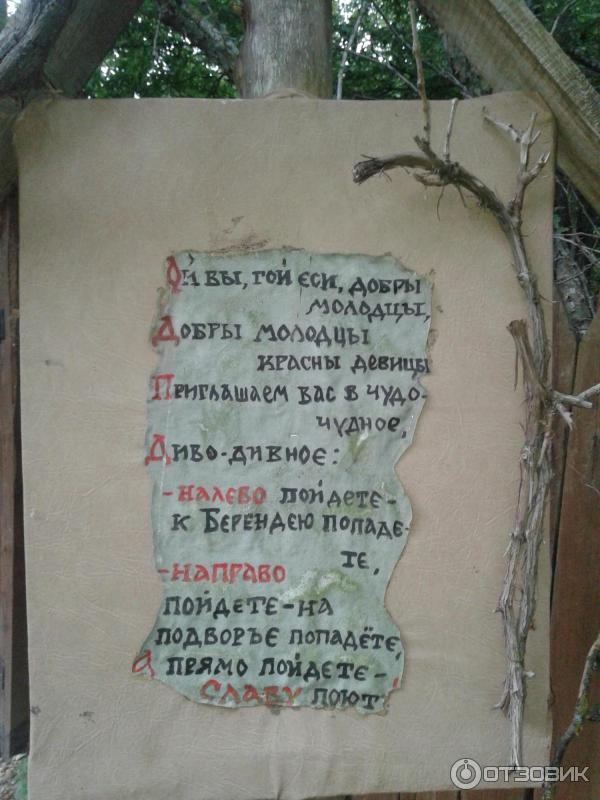 Ой вы, гой еси, добры
молодцы,
Добры молодцы
красны девицы
Приглашаем вас в чудо-
чудное,
Диво-дивное:
-налево пойдете-
к Берендею попаде-
те,
-направо
пойдете-на
подворье попадёте,
а прямо пойдете-
славу поют!
ОТЗОВИК